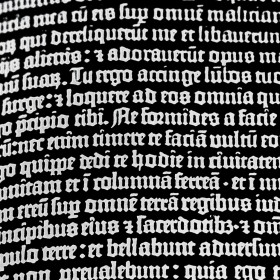 icia mea cū eis sup omnē malician
qui dereliquerūt me et libauerun
ijs alienis: ⁊ adorauerūt opus ma
uū suaꝝ. Tu ergo accinge lūbos tuo
surge: ⁊ loquere ad eos omnia qu
go p̄cipio tibi. Ne formides a facie
rū: nec enim timere te faciā vultū eo
go quippe dedi te hodie in ciuitatem
unitam et ī columnā ferreā· et ī m
m ereū sup omnē terrā regibus iud
incipibus eius ⁊ sacerdotibꝫ·⁊ om
pulo terre: et bellabunt aduersum
non preualebunt: quia ego